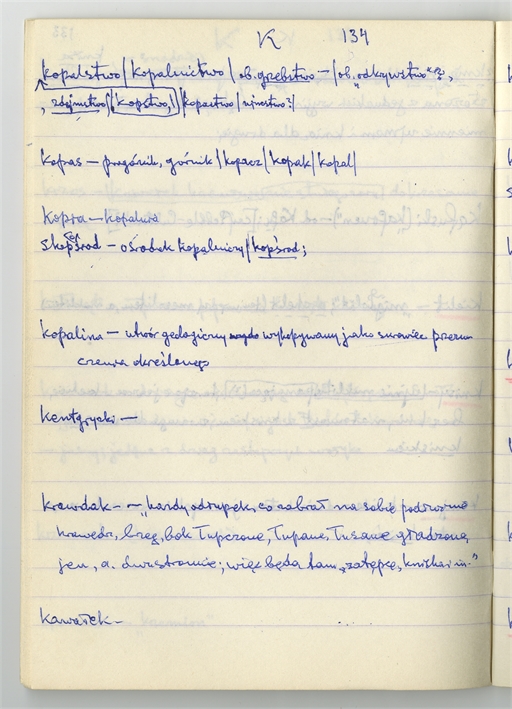 K 134
kopalstwo | kopalnictwo | ob. grzebstwo – | ob. „odkrywstwo"?,
, zdejmstwo | kopstwo, | kopactwo |
kopas – górnik | kopacz | kopak | kopal |
kopra – kopalnia
skopśrod – ośrodek kopalniczy | kopśrod;
kopalina – utwór geologiczny wydobywany jako surowiec przezna-
czenia określonego
Kentgrycki –
krawdak – – „każdy odrąpek, co zabrał na sobie
krawędź, brzeg, bok łupczone, łupane, gładzone,
jedn. a. dwustronnie; więc będą tam „
kawałek –